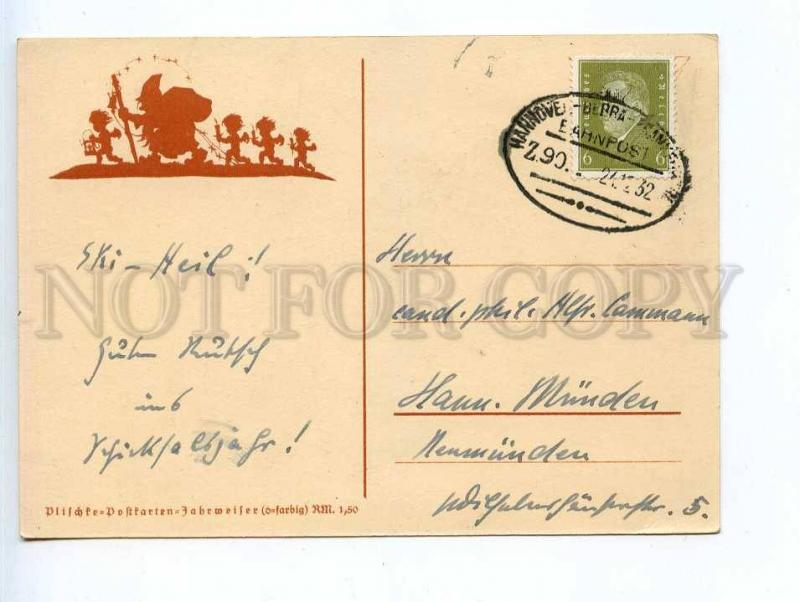 HANNOVER-BEBRA-
BAHNPOST
Z.90. 21.12.32
6 6
Ski-Heil!
Guten Rutsch
ins
Schicksalsjahr!
Herrn
cand. phil. Alfr. Cammann
Hann. Münden
Neumünden
Wilhelmshäuserstr. 5.
Plischke-Postkarten-Jahrweiser (6-farbig) RM. 1,50
NOT FOR COPY